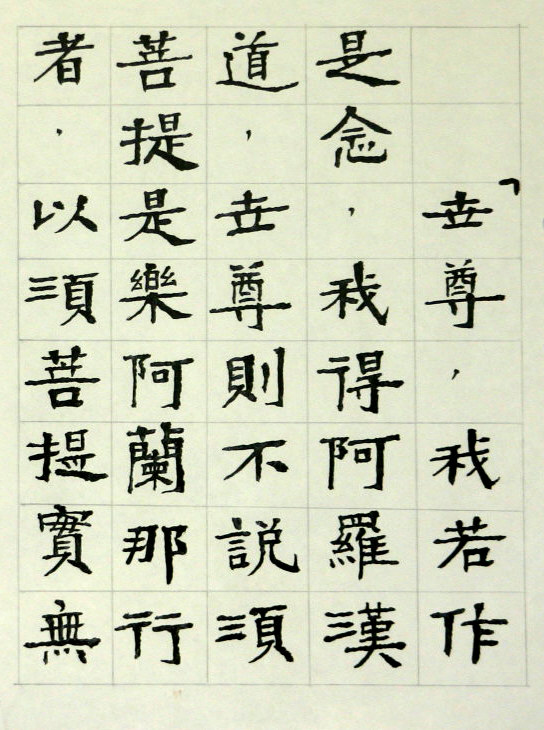 「世尊，我若作
是念，我得阿羅漢
道，世尊則不説須
菩提是樂阿蘭那行
者，以須菩提實無